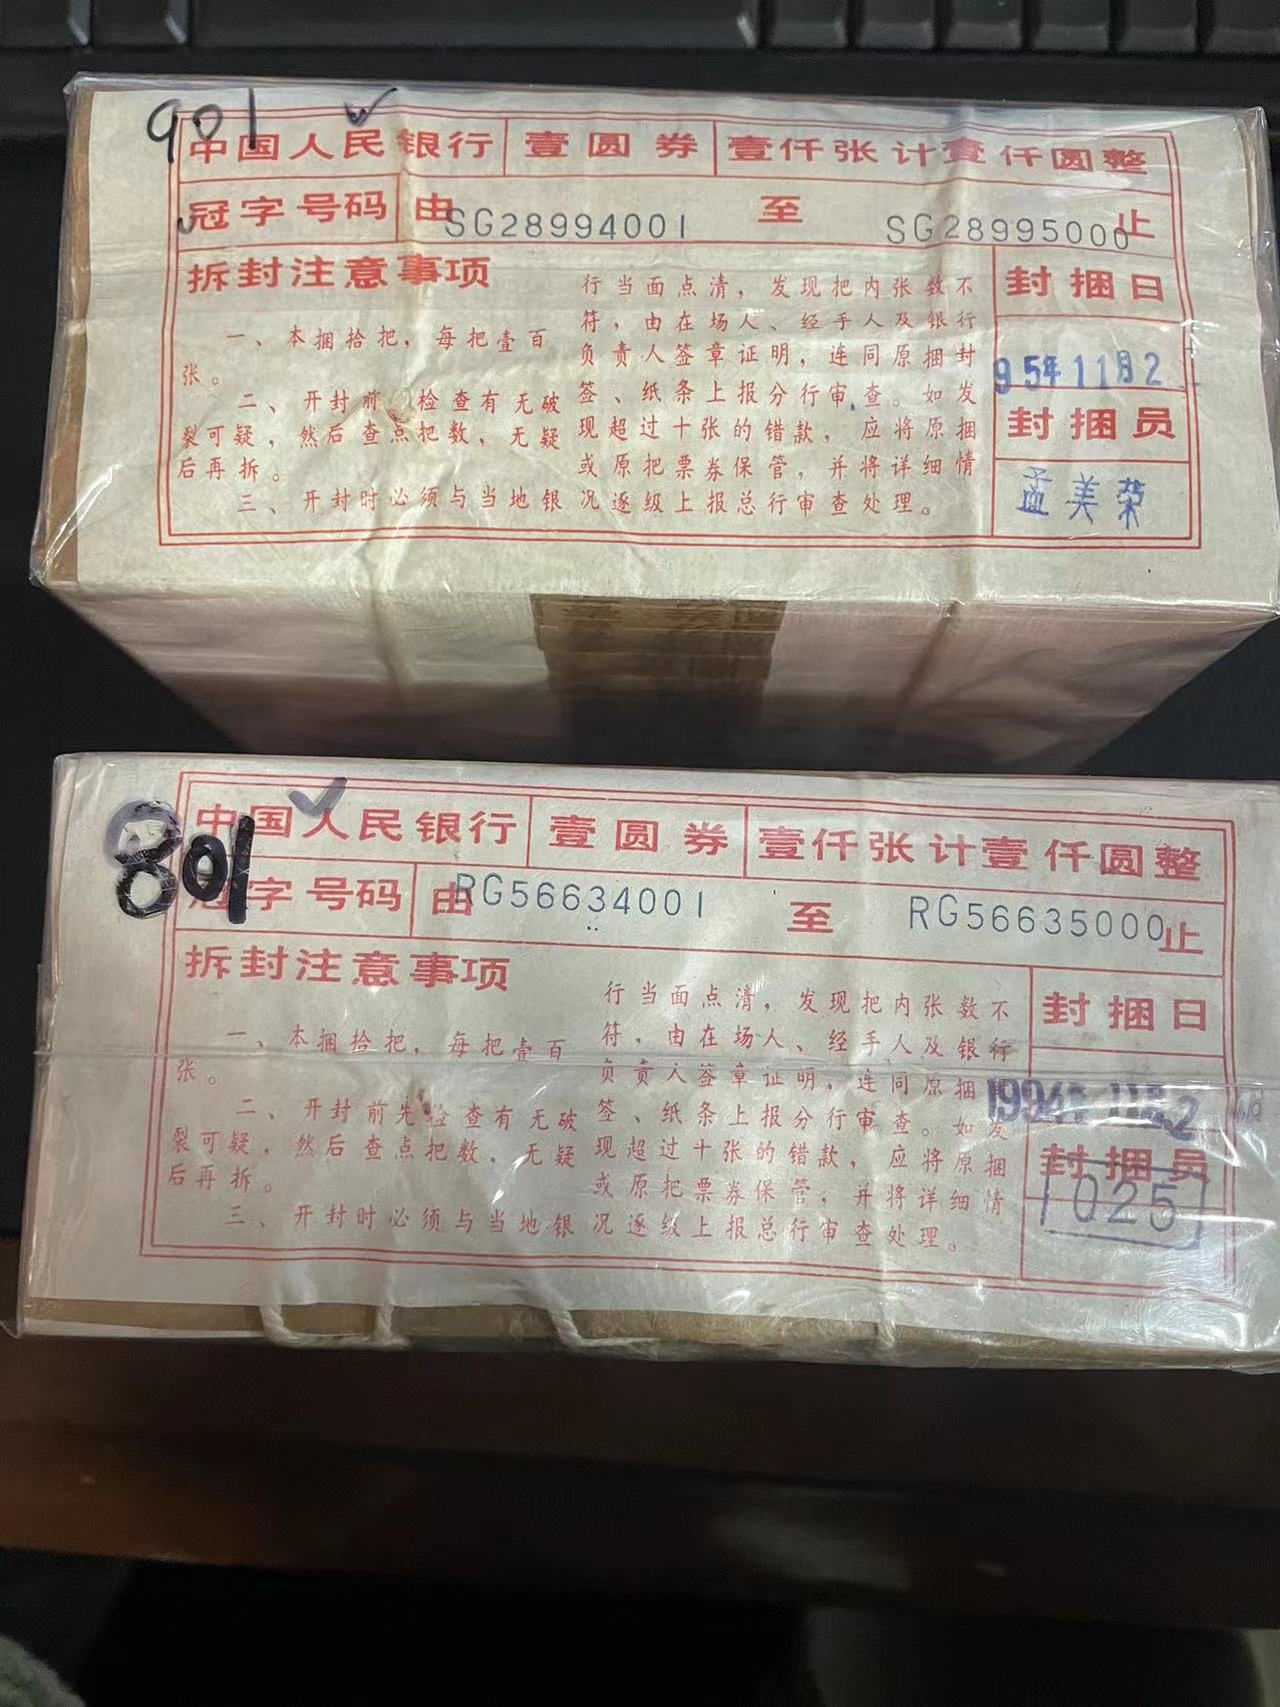 901
中国人民银行 壹圆券 壹仟张计壹仟圆整
冠字号码 由SG28994001 至 SG28995000止
拆封注意事项
一、本捆拾把，每把壹百
张。
二、开封前 检查有无破
裂可疑，然后查点把数，无疑
后再拆。
三、开封时必须与当地银
行当面点清，发现把内张数不
符，由在场人、经手人及银行
负责人签章证明，连同原捆封
签、纸条上报分行审查。如发
现超过十张的错款，应将原捆
或原把票券保管，并将详细情
况逐级上报总行审查处理。
封捆日
95年11月2
封捆员
孟美荣
801
中国人民银行 壹圆券 壹仟张计壹仟圆整
冠字号码 由RG56634001 至 RG56635000止
拆封注意事项
一、本捆拾把，每把壹百
张。
二、开封前先检查有无破
裂可疑，然后查点把数，无疑
后再拆。
三、开封时必须与当地银
行当面点清，发现把内张数不
符，由在场人、经手人及银行
负责人签章证明，连同原捆
签、纸条上报分行审查。如发
现超过十张的错款，应将原捆
或原把票券保管，并将详细情
况逐级上报总行审查处理。
封捆日
1994年11月2
封捆员
1025